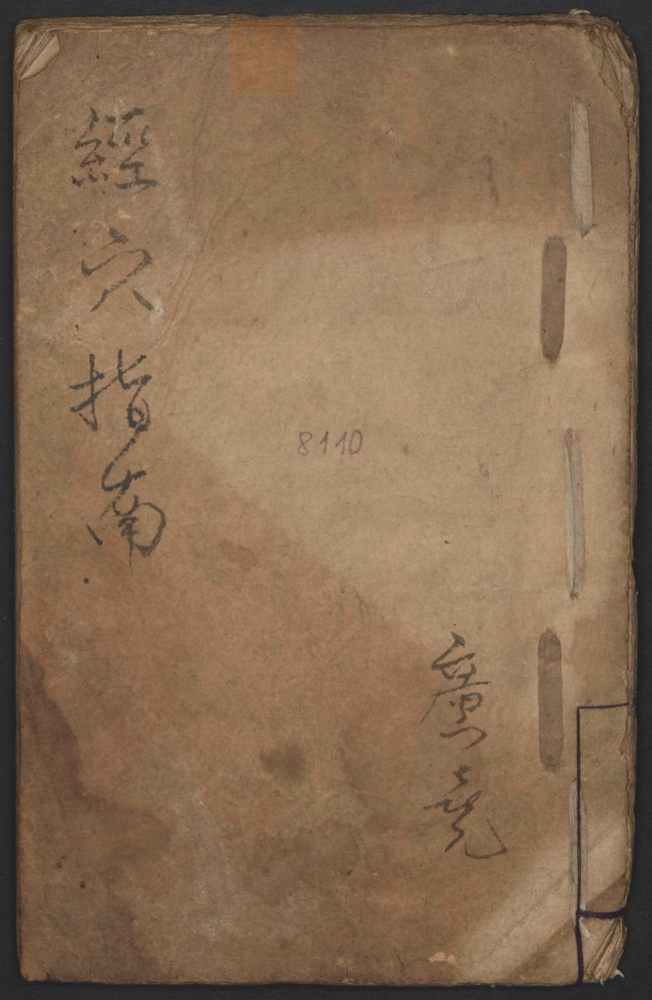 經穴指南
8110
廣堯